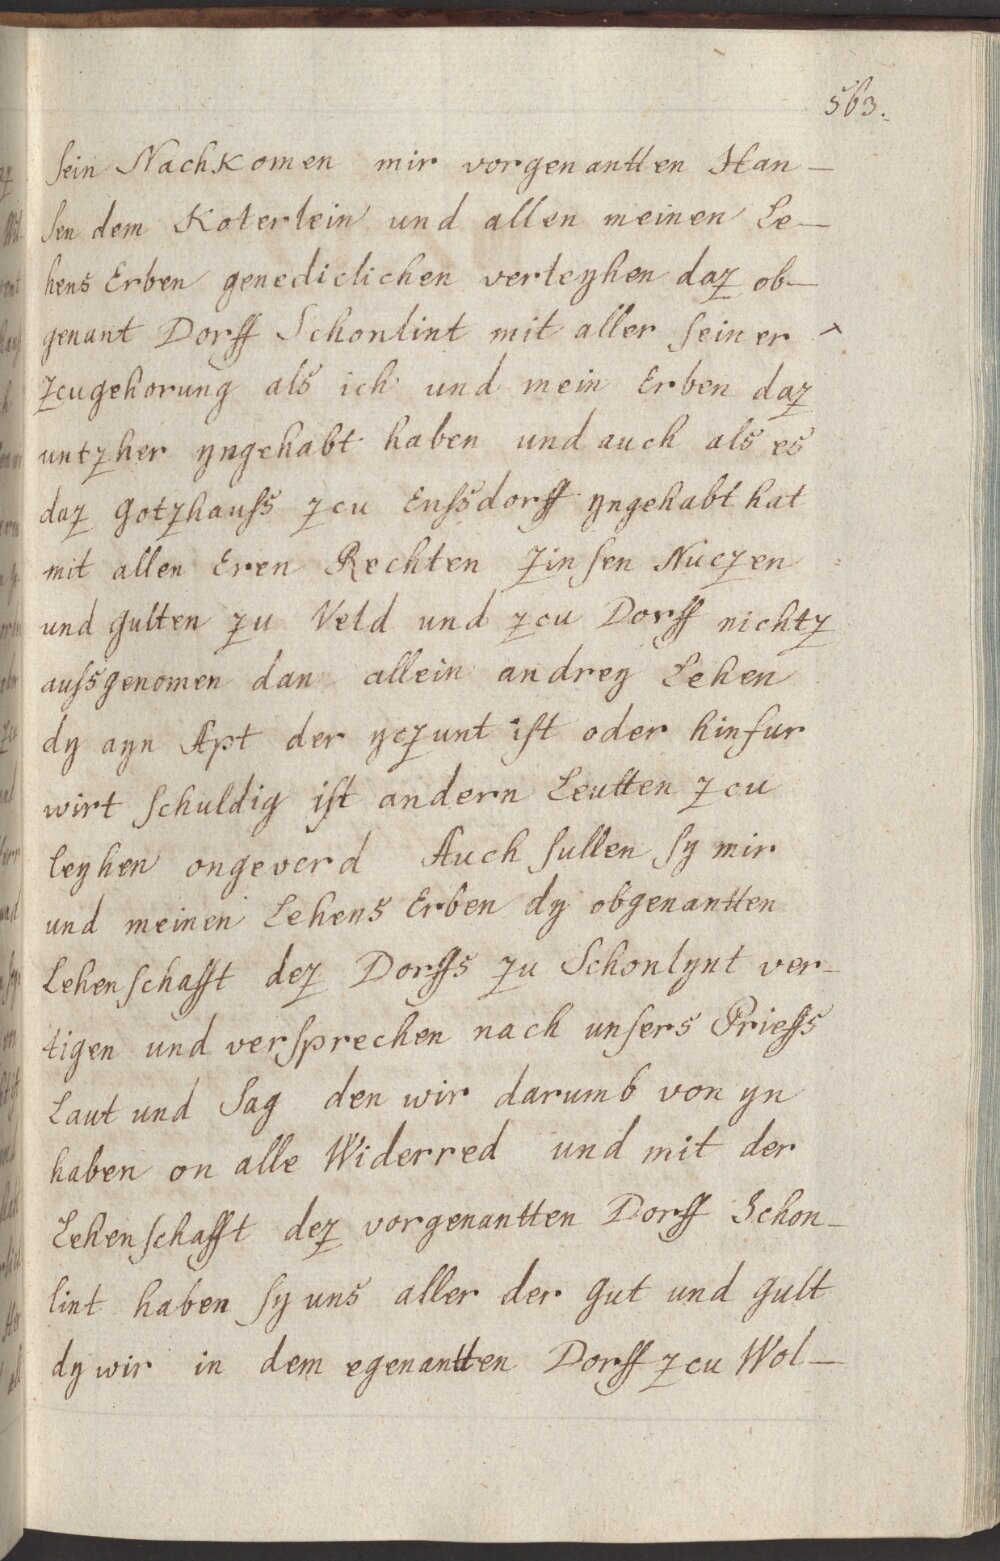 563.
sein Nachkomen mir vorgenantten Han-
sen dem Koterlein und allen meinen Le-
hens Erben genediclichen verleyhen daz ob-
genant Dorff Schonlint mit aller seiner
zcugehorung als ich und mein Erben daz
untzher yngehabt haben und auch als es
daz Gotzhauss zcu Enssdorff yngehabt hat
mit allen Eren Rechten Zinsen Nuczen
und Gulten zu Veld und zcu Dorff nichtz
aussgenomen dan allein andrey Lehen
dy ayn Apt der yczunt ist oder hinfur
wirt schuldig ist andern Leutten zcu
leyhen ongeverd Auch sullen sy mir
und meinen Lehens Erben dy obgenantten
Lehenschafft dez Dorffs zu Schonlynt ver-
tigen und versprechen nach unsers Prieffs
Laut und Sag den wir darumb von yn
haben on alle Widerred und mit der
Lehenschafft dez vorgenantten Dorff Schon-
lint haben sy uns aller der Gut und Gult
dy wir in dem egenantten Dorff zcu Wol-